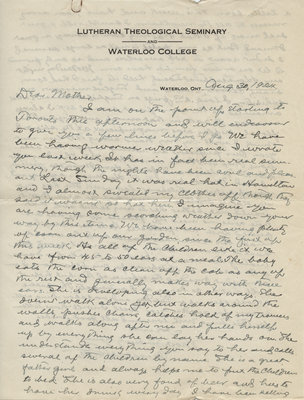 LUTHERAN THEOLOGICAL SEMINARY
AND
WATERLOO COLLEGE
WATERLOO, ONT. Aug 30, 192
Dear Mother,
I am on the point of starting to
Toronto this afternoon and will endeavor
to give you a few lines before I go. We have
been having warmer weather since I wrote
you last week. It has in fact been real
though the nights have been cool
Last Sunday it was real hot in Hamilton
and I almost sweated my clothes off though they
said it wasn't so hot. I imagine you
are having some scorching weather down your
way by this time. We have been having plenty
of corn out of our garden since the first of
this week. As all of the children like it we
have from 45 to 50 ears at a meal. The baby
eats the corn as clean off the cob as any of
the rest and generally makes way with three
ears. She is developing also in other ways. She
doesn't walk alone yet but walks around the
walls, pushes chairs, catches hold of my trousers
and walks along after me and pulls herself
up by everything she can lay her hands on. She
understands everything you say to her and calls
several of the children by name. She is a great
father girl and always helps me to put the children
to bed. She is also very fond of beer and has to
have her every day. I have been